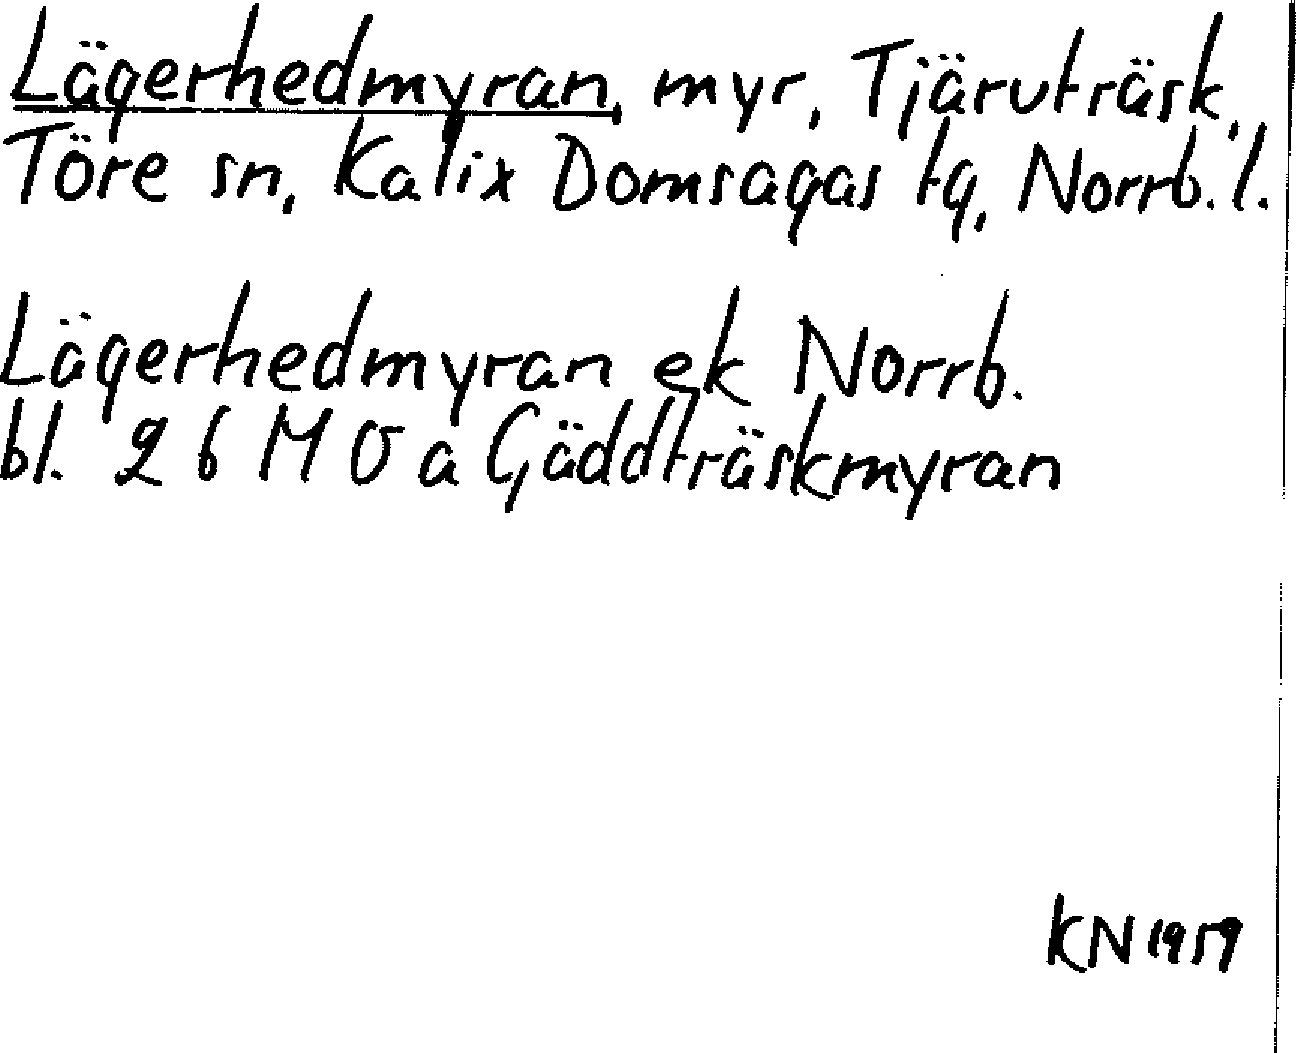 Lägerhedmyran, myr, Tjäruträsk,
Töre sn, Kalix Domsagas tg, Norrb. l.
Lägerhedmyran ek Norrb.
bl. 26 M O a Gäddträskmyran
KN 1959